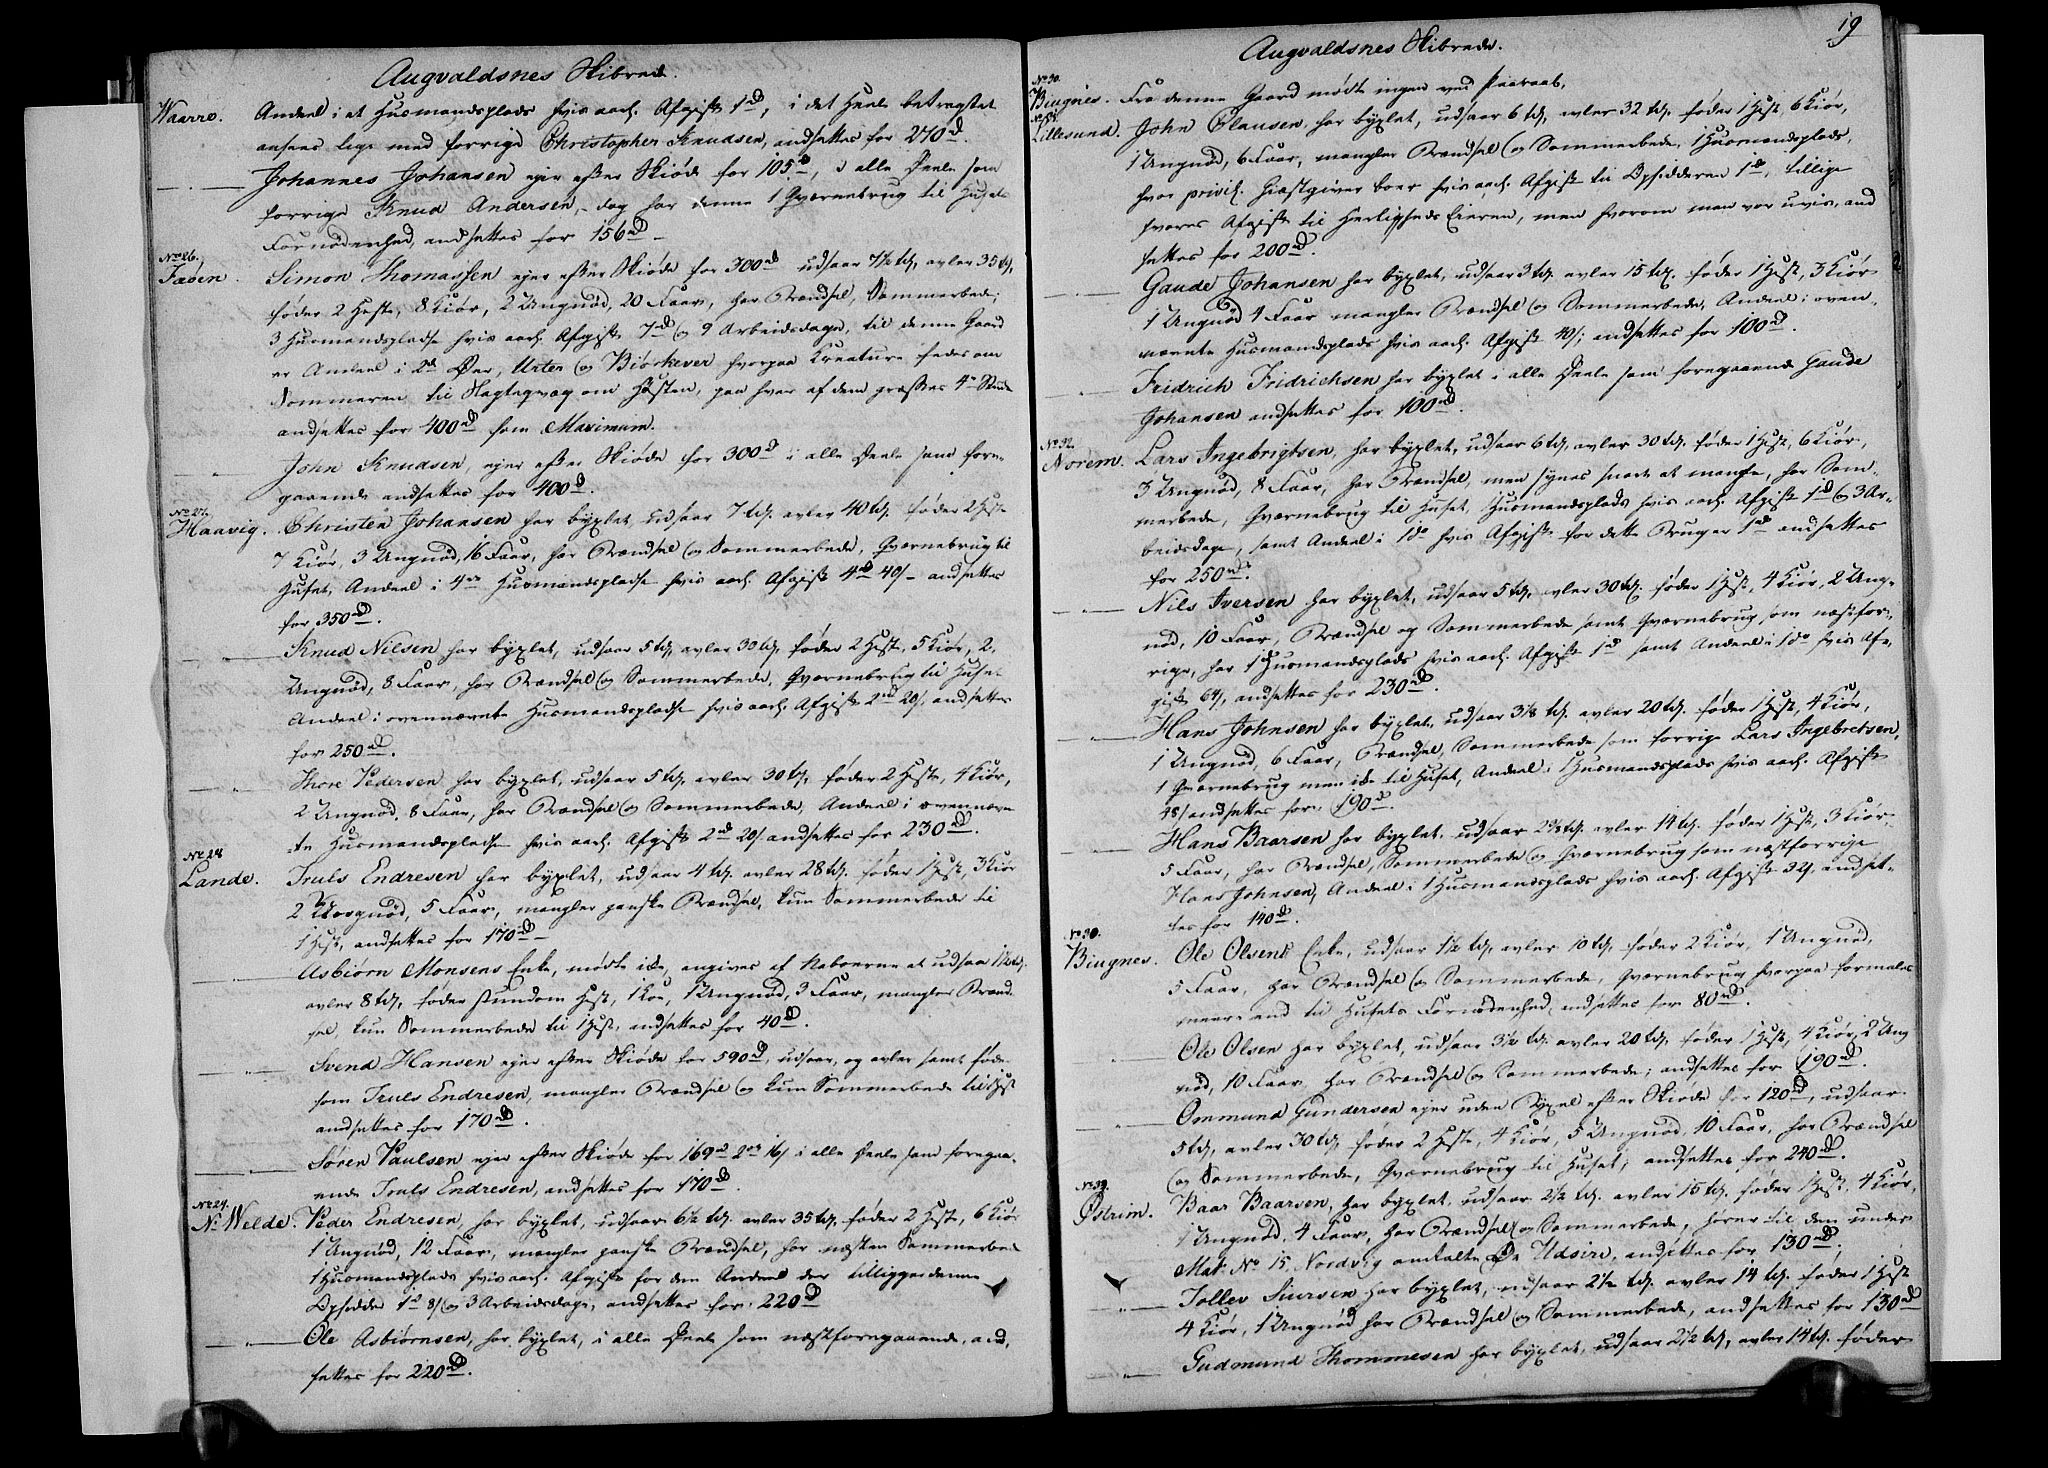 Augvaldsnes Skibrede.
Waarre. Andeel i et Huusmandsplads hvis aarl. Afgift 1 rd, i det Heele betragtet
ansees lige med forrige Christopher Knudsen, andsettes for 270 rd.
Johannes Johansen ejer efter Skiøde for 105 rd, i alle Deele som
forrige Knud Andersen, dog har denne 1 Qværnebrug til Husets
Fornødenhed, andsettes for 156 rd
No 26.
Faøen. Simon Thomassen ejer efter Skiøde for 300 rd udsaar 7½ td, avler 35 td,
føder 2 Heste, 8 Kiør, 2 Ungnød, 20 Faar, har Brændsel, Sommerbede;
3 Huusmandspladse hvis aarl. Afgift 7 rd og 9 Arbeidsdage, til denne Gaard
er Andeel i 2de Øer, Urter og Biørkever hvorpaa Kreature fedes om
Sommeren til Slagteqvæg om Høsten, paa hver af dem græsses 4re Stkr
andsettes for 400 rd som Maximum.
John Knudsen, ejer efter Skiøde for 300 rd i alle Deele som fore-
gaaende andsettes for 400 rd.
No 27.
Haavig. Christen Johansen har byxlet, udsaar 7 td, avler 40 td, føder 2 Heste
7 Kiør, 3 Ungnød, 16 Faar, har Brændsel og Sommerbede, Qværnebrug til
Huset, Andeel i 4re Huusmandspladse hvis aarl. Afgift 4 rd 40 s andsettes
for 350 rd.
Knud Nilsen har byxlet, udsaar 5 td, avler 30 td, føder 2 Heste, 5 Kiør, 2
Ungnød, 8 Faar, har Brændsel og Sommerbede, Qværnebrug til Huset
Andeel i ovennævnte Huusmandspladse hvis aarl. Afgift 2 rd 20 s, andsettes
for 250 rd.
Thore Pedersen har byxlet, udsaar 5 td, avler 30 td, føder 2 Heste, 4 Kiør,
2 Ungnød, 8 Faar, har Brændsel og Sommerbede, Andeel i ovennævn-
te Huusmandspladse hvis aarl. Afgift 2 rd 20 s andsettes for 230 rd.
No 28
Lande. Truls Endresen har byxlet, udsaar 4 td, avler 28 td, føder 1 Hest, 3 Kiør
2 Ungnød, 5 Faar, mangler ganske Brændsel, kun Sommerbede til
1 Hest, andsettes for 170 rd
Asbiørn Monsens Enke, mødte ikke, angives af Naboerne at udsaar 1½ td.
avler 8 td, føder stundom Hest, 1 Koe, 1 Ungnød, 3 Faar, mangler Brænd-
sel, kun Sommerbede til 1 Hest, andsettes for 40 rd.
Svend Hansen ejer efter Skiøde for 590 rd, udsaar, og avler samt føder
som Truls Endresen, mangler Brændsel og kun Sommerbede til 1 Hest
andsettes for 170 rd.
Søren Paulsen ejer efter Skiøde for 169 rd 2 ort 16 s i alle Deele som foregaa-
ende Truls Endresen, andsettes for 170 rd.
No 29.
N: Welde. Peder Endresen, har byxlet, udsaar 6½ td, avler 35 td, føder 2 Heste, 6 Kiør
1 Ungnød, 12 Faar, mangler ganske Brændsel, har næsten Sommerbede
1 Huusmandsplads hvis aarl. Afgift for den Andeel der tilligger denne
Opsidder 1 rd 8 s og 3 Arbeidsdage, andsettes for 220 rd
Ole Asbiørnsen, har byxlet, i alle Deele som næstforegaaende, and-
settes for 220 rd.
19
Augvaldsnes Skibrede.
No 30.
Biugnes. Fra denne Gaard mødte ingen ved Paaraab.
No 31.
Lillesund. John Clausen, har byxlet, udsaar 6 td, avler 32 td, føder 1 Hest, 6 Kiør,
1 Ungnød, 6 Faar, mangler Brændsel og Sommerbede, 1 Huusmandsplads,
hvor privil. Giæstgiver boer hvis aarl. Afgift til Opsidderen 1 rd, tillige
svares Afgift til Herligheds Eieren, men hvorom man var uvis, and
settes for 200 rd.
Gaude Johansen har byxlet, udsaar 3 td, avler 15 td, føder 1 Hest, 3 Kiør
1 Ungnød 4 Faar mangler Brændsel og Sommerbede, Andeel i oven-
nævnte Huusmandsplads hvis aarl. Afgift 40 s; andsettes for 100 rd.
Fridrich Fridrichsen har byxlet i alle Deele som foregaaende Gaude
Johansen andsettes for 100 rd.
No 32.
Norem. Lars Ingebrigtsen, har byxlet, udsaar 6 td, avler 30 td, føder 1 Hest, 6 Kiør,
3 Ungnød, 8 Faar, har Brændsel, men synes snart at mangle, har Som-
merbede, Qværnebrug til Huset, Huusmandsplads hvis aarl. Afgift 1 rd og 3 Ar-
beidsdage, samt Andeel i 1 do hvis Afgift for dette Brug er 1 rd andsettes
for 250 rd.
Nils Iversen har byxlet, udsaar 5 td, avler 30 td, føder 1 Hest, 4 Kiør, 2 Ung-
nød, 10 Faar, Brændsel og Sommerbede samt Qværnebrug som næstfor-
rige, har 1 Huusmandsplads hvis aarl. Afgift 1 rd samt Andeel i 1 do hvis Af-
gift 64 s, andsettes for 230 rd.
Hans Johnsen har byxlet, udsaar 3⅛ td, avler 20 td, føder 1 Hest, 4 Kiør,
1 Ungnød, 6 Faar, Brændsel, Sommerbede som forrige Lars Ingebretsen,
1 Qværnebrug men ikke til Huset, Andeel i 1 Huusmandsplads hvis aarl. Afgift
48 s andsettes for 190 rd.
Hans Baarsen har byxlet, udsaar td, avler 14 td, føder 1 Hest, 3 Kiør,
5 Faar, har Brændsel, Sommerbede og Qværnebrug som næstforrige
Hans Johnsen, Andeel i 1 Huusmandsplads hvis aarl. Afgift 32 s, andset-
tes for 140 rd.
No 30.
Biugnes. Ole Olsens Enke, udsaar 1½ td, avler 10 td, føder 2 Kiør, 1 Ungnød,
5 Faar, har Brændsel og Sommerbede, Qværnebrug hvorpaa formales
meer end til Husets Fornødenhed, andsettes for 80 rd.
Ole Olsen har byxlet, udsaar 3½ td avler 20 td, føder 1 Hest, 4 Kiør, 2 Ung
nød, 10 Faar, har Brændsel og Sommerbede; andsettes for 190 rd.
Ommund Gundersen ejer uden Byxel efter Skiøde for 120 rd, udsaar
5 td, avler 30 td, føder 2 Heste, 4 Kiør, 5 Ungnød, 10 Faar, har Brændsel
og Sommerbede, Qværnebrug til Huset; andsettes for 240 rd.
No 33.
Østrim. Baar Baarsen, har byxlet, udsaar 2½ td, avler 15 td, føder 1 Hest, 4 Kiør,
1 Ungnød, 4 Faar, har Brændsel og Sommerbede, hører til den under
Matr No 15 Nordvig omtalte Øe Udsire, andsettes for 130 rd.
Tollev Siursen har byxlet, udsaar 2½ td, avler 14 td, føder 1 Hest
4 Kiør, 1 Ungnød har Brændsel og Sommerbede, andsettes for 130 rd
Gudmund Thommesen har byxlet, udsaar 2½ td, avler 14 td, føder